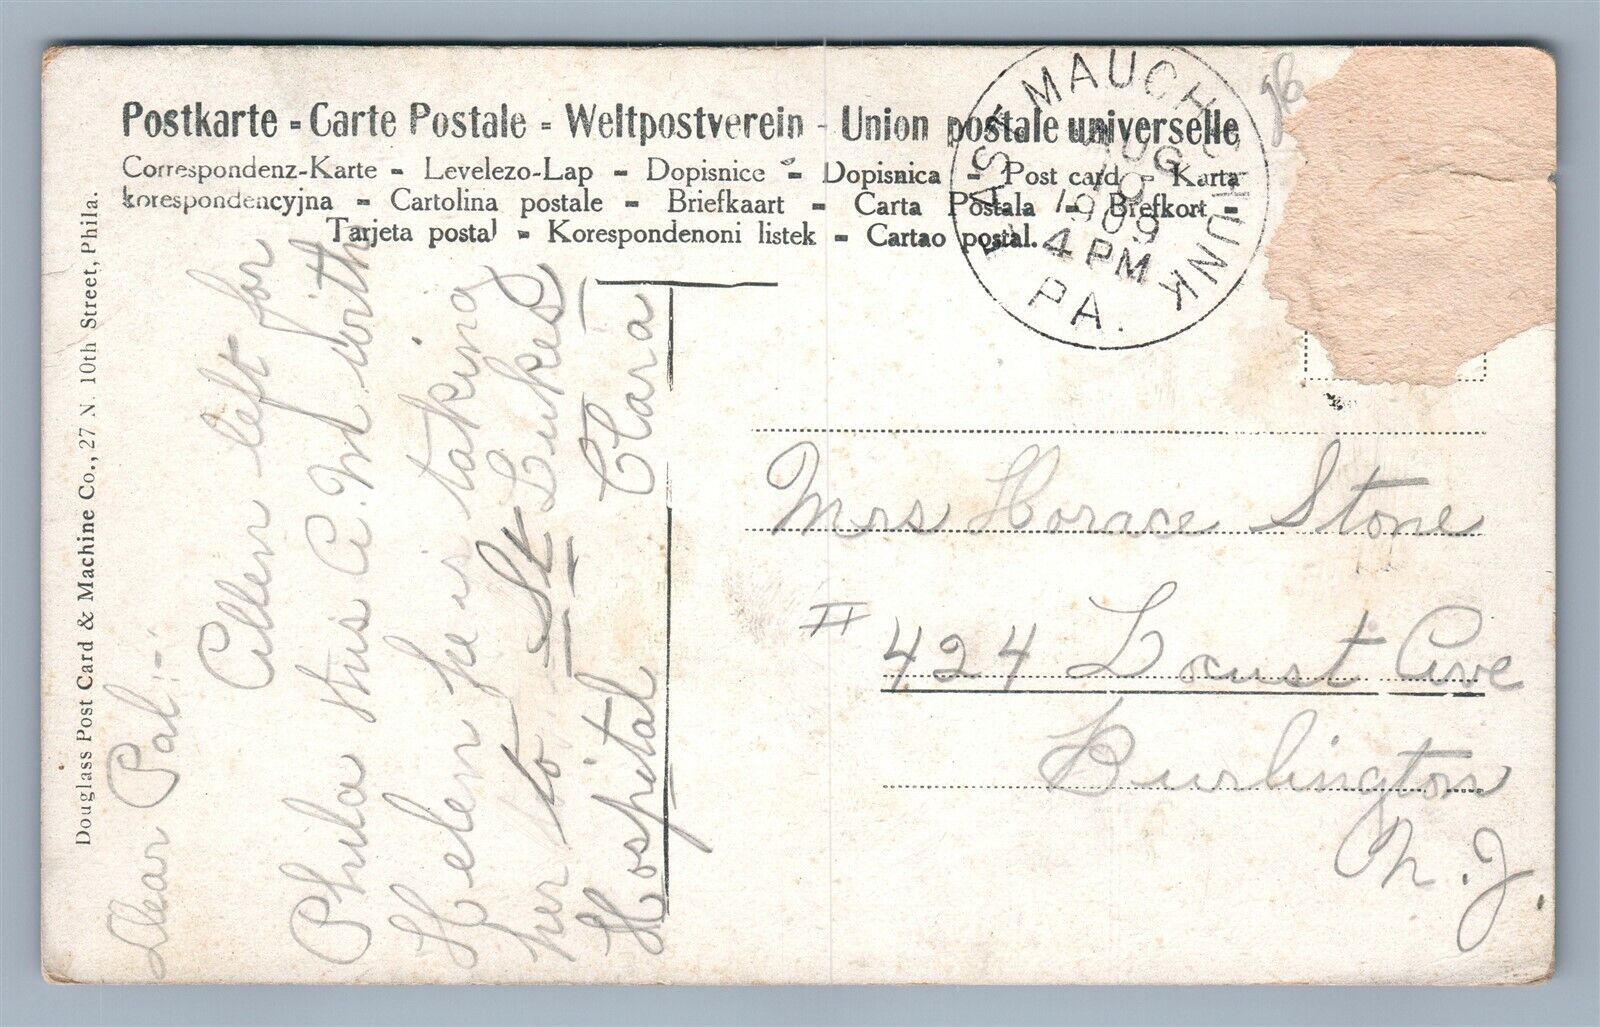 Postkarte - Carte Postale - Weltpostverein - Union postale universelle
Correspondenz-Karte - Levelezo-Lap - Dopisnice - Dopisnica - Post card - Karta
korespondencyjna - Cartolina postale - Briefkaart - Carta Postala - Brefkort -
Tarjeta postal - Korespondenoni listek - Cartao postal.
EAST MAUCH CHUNK
AUG
10
1909
4 PM
PA.
Douglass Post Card & Machine Co., 27 N. 10th Street, Phila.
Dear Pal:-
Allen left for
Phila this A.M with
Helen he is taking
her to St Lukes
Hospital Clara
Mrs Horace Stone
# 424 Locust Ave
Burlington
N. J.